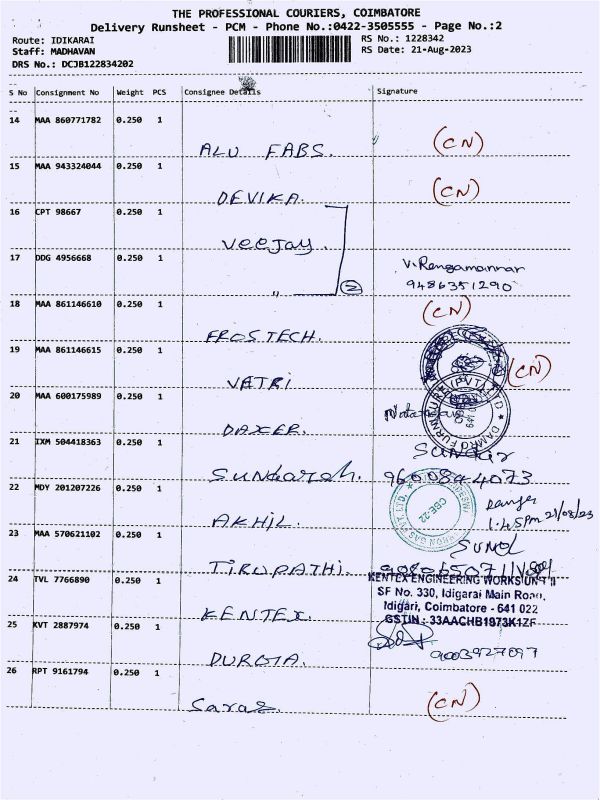 THE PROFESSIONAL COURIERS, COIMBATORE
Delivery Runsheet - PCM - Phone No.:0422-3505555 - Page No.:2
Route: IDIKARAI
RS No.: 1228342
Staff: MADHAVAN
RS Date: 21-Aug-2023
DRS No.: DCJB122834202
S No Consignment No Weight PCS Consignee Details Signature
14 MAA 860771782 0.250 1
ALU FABS. (CN)
15 MAA 943324044 0.250 1
DEVIKA. (CN)
16 CPT 98667 0.250 1
Veejay.
17 DDG 4956668 0.250 1
V. Rengamannar
9486351290
" 2
18 MAA 861146610 0.250 1
FROSTECH. (CN)
19 MAA 861146615 0.250 1
VETRI (CN)
20 MAA 600175989 0.250 1
DAXER.
DAMRO FURNITURE (PVT) LTD
21 IXM 504418363 0.250 1
Sundar
Sundarah. 9600844073
22 MDY 201207226 0.250 1
AKHIL.
CBE-22
1.45pm 21/08/23
23 MAA 570621102 0.250 1
TIRUPATHI.
24 TVL 7766890 0.250 1
KENTEX ENGINEERING WORKS UNIT II
SF No. 330, Idigarai Main Road,
Idigari, Coimbatore - 641 022
GSTIN : 33AACHB1973K1ZF
KENTEX.
25 KVT 2887974 0.250 1
DURGA. 9003927097
26 RPT 9161794 0.250 1
Saraz. (CN)